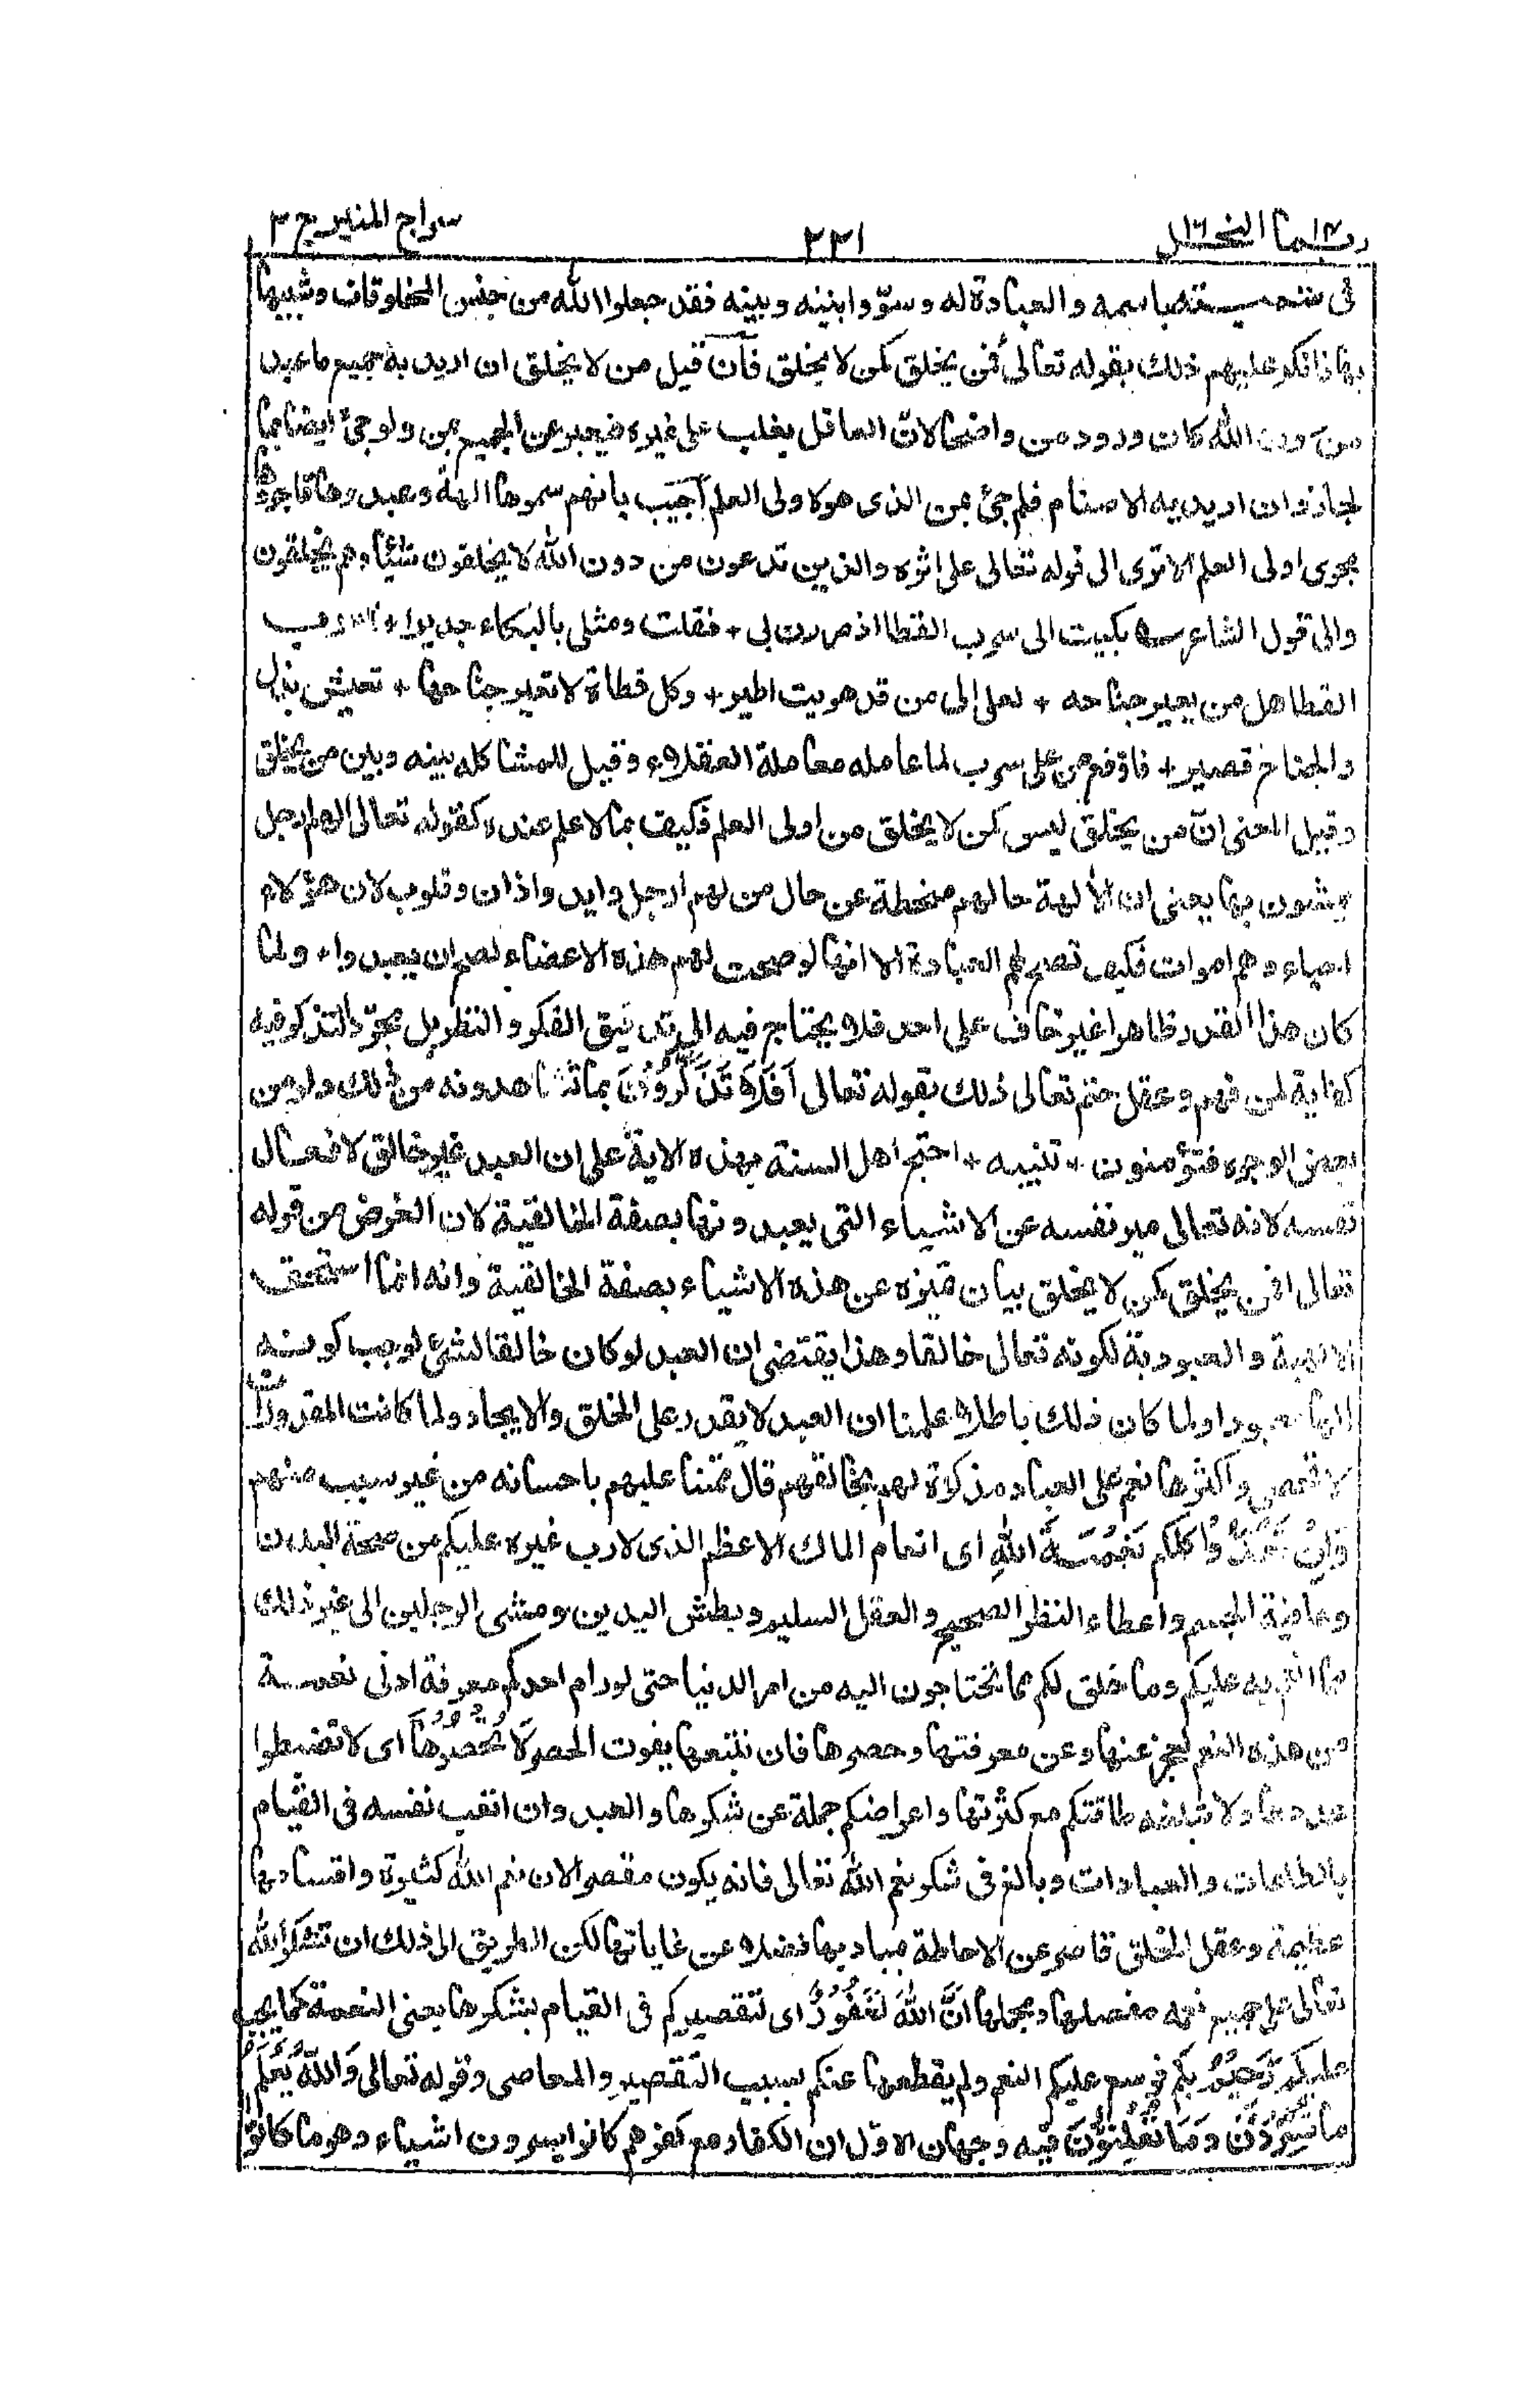 ربما ١٤ النحل ١٦
٢٢١
سراج المنير ج ٣
فى تسميته باسمه والعبادة له وسوّوا بينه وبينه فقد جعلوا الله من جنس المخلوقات وشبيها
بها فانكر عليهم ذلك بقوله تعالى أفمن يخلق كمن لا يخلق فآن قيل من لا يخلق ان اريد به جميع ما عبد
من دون الله كان ورود من واضحا لانّ العاقل يغلب على غيره فيعبر عن الجميع بمن ولو جئ ايضا بما
لجاز وان اريد به الاصنام فلم جئ بمن الذى هو لاولى العلم آجيب بانهم سموها الهة وعبدوها فاجروها
مجرى اولى العلم الا ترى الى قوله تعالى على اثره والذين تدعون من دون الله لا يخلقون شيئا وهم يخلقون
والى قول الشاعر بكيت الى سرب القطا اذ مررن بى + فقلت ومثلى بالبكاء جدير + اسرب
القطا هل من يعير جناحه + لعلى الى من قد هويت اطير + وكل قطاة لا تعير جناحها + تعيش بذل
والجناح قصير + فاوقع من على سرب لما عامله معاملة العقلاء وقيل للمشاكله بينه وبين من يخلق
وقيل المعنى انّ من يخلق ليس كمن لا يخلق من اولى العلم فكيف بما لا علم عنده كقوله تعالى الهم ارجل
يمشون بها يعنى ان الألهة حالهم منحطة عن حال من لهم ارجل وايد واذان وقلوب لان هؤلاء
احياء وهم اموات فكيف تصح لهم العبادة الا انها لو صحت لهم هذه الاعضاء لصح ان يعبدوا + ولما
كان هذا القدر ظاهرا غير خاف على احد فلا يحتاج فيه الى تدقيق الفكر والنظر بل مجرّد التذكر فيه
كفاية لمن فهم وعقل ختم تعالى ذلك بقوله تعالى اَفَلَا تَذَكَّرُوْنَ بما تشاهدونه من ذلك ولو من
بعض الوجوه فتؤمنون + تنبيه + احتج اهل السنة بهذه الاية على ان العبد غير خالق لافعال
نفسه لانه تعالى ميز نفسه عن الاشياء التى يعبدونها بصفة الخالقية لان الغرض من قوله
تعالى افمن يخلق كمن لا يخلق بيان تميزه عن هذه الاشياء بصفة الخالقية وانه انما استحق
الالهية والعبودية لكونه تعالى خالقا وهذا يقتضى ان العبد لو كان خالقا لشئ لوجب كونه
الها معبودا ولما كان ذلك باطلا علمنا ان العبد لا يقدر على الخلق والايجاد ولما كانت المقدورات
لا تحصى واكثرها نعم على العباد مذكرة لهم بخالقهم قال ممتنا عليهم باحسانه من غير سبب منهم
وَاِنْ تَعُدُّوْا كلكم نِعْمَةَ اللهِ اى انعام المالك الاعظم الذى لا رب غيره عليكم من صحة البدن
وعافية الجسم واعطاء النظر الصحيح والعقل السليم وبطش اليدين ومشى الرجلين الى غير ذلك
مما انعم به عليكم وما خلق لكم مما تحتاجون اليه من امر الدنيا حتى لو رام احدكم معرفة ادنى نعمة
من هذه النعم لعجز عنها وعن معرفتها وحصرها فان تتبعها يفوت الحصر لَا تُحْصُوْهَا اى لا تضبطوا
عددها ولا تبلغه طاقتكم مع كثرتها واعراضكم جملة عن شكرها والعبد وان اتعب نفسه فى القيام
بالطاعات والعبادات وبالغ فى شكر نعم الله تعالى فانه يكون مقصرا لان نعم الله كثيرة واقسامها
عظيمة وعقل الخلق قاصر عن الاحاطة بمباديها فضلا عن غاياتها لكن الطريق الى ذلك ان تشكر الله
تعالى على جميع نعمه مفصلها ومجملها اِنَّ اللهَ لَغَفُوْرٌ اى لتقصيركم فى القيام بشكرها يعنى النعمة كما يجب
عليكم رَّحِيْمٌ بكم فوسع عليكم النعم ولم يقطعها عنكم بسبب التقصير والمعاصى وقوله تعالى وَاللهُ يَعْلَمُ
مَا تُسِرُّوْنَ وَمَا تُعْلِنُوْنَ فيه وجهان الاوّل ان الكفار مع كفرهم كانوا يسرون اشياء وهو ما كانوا